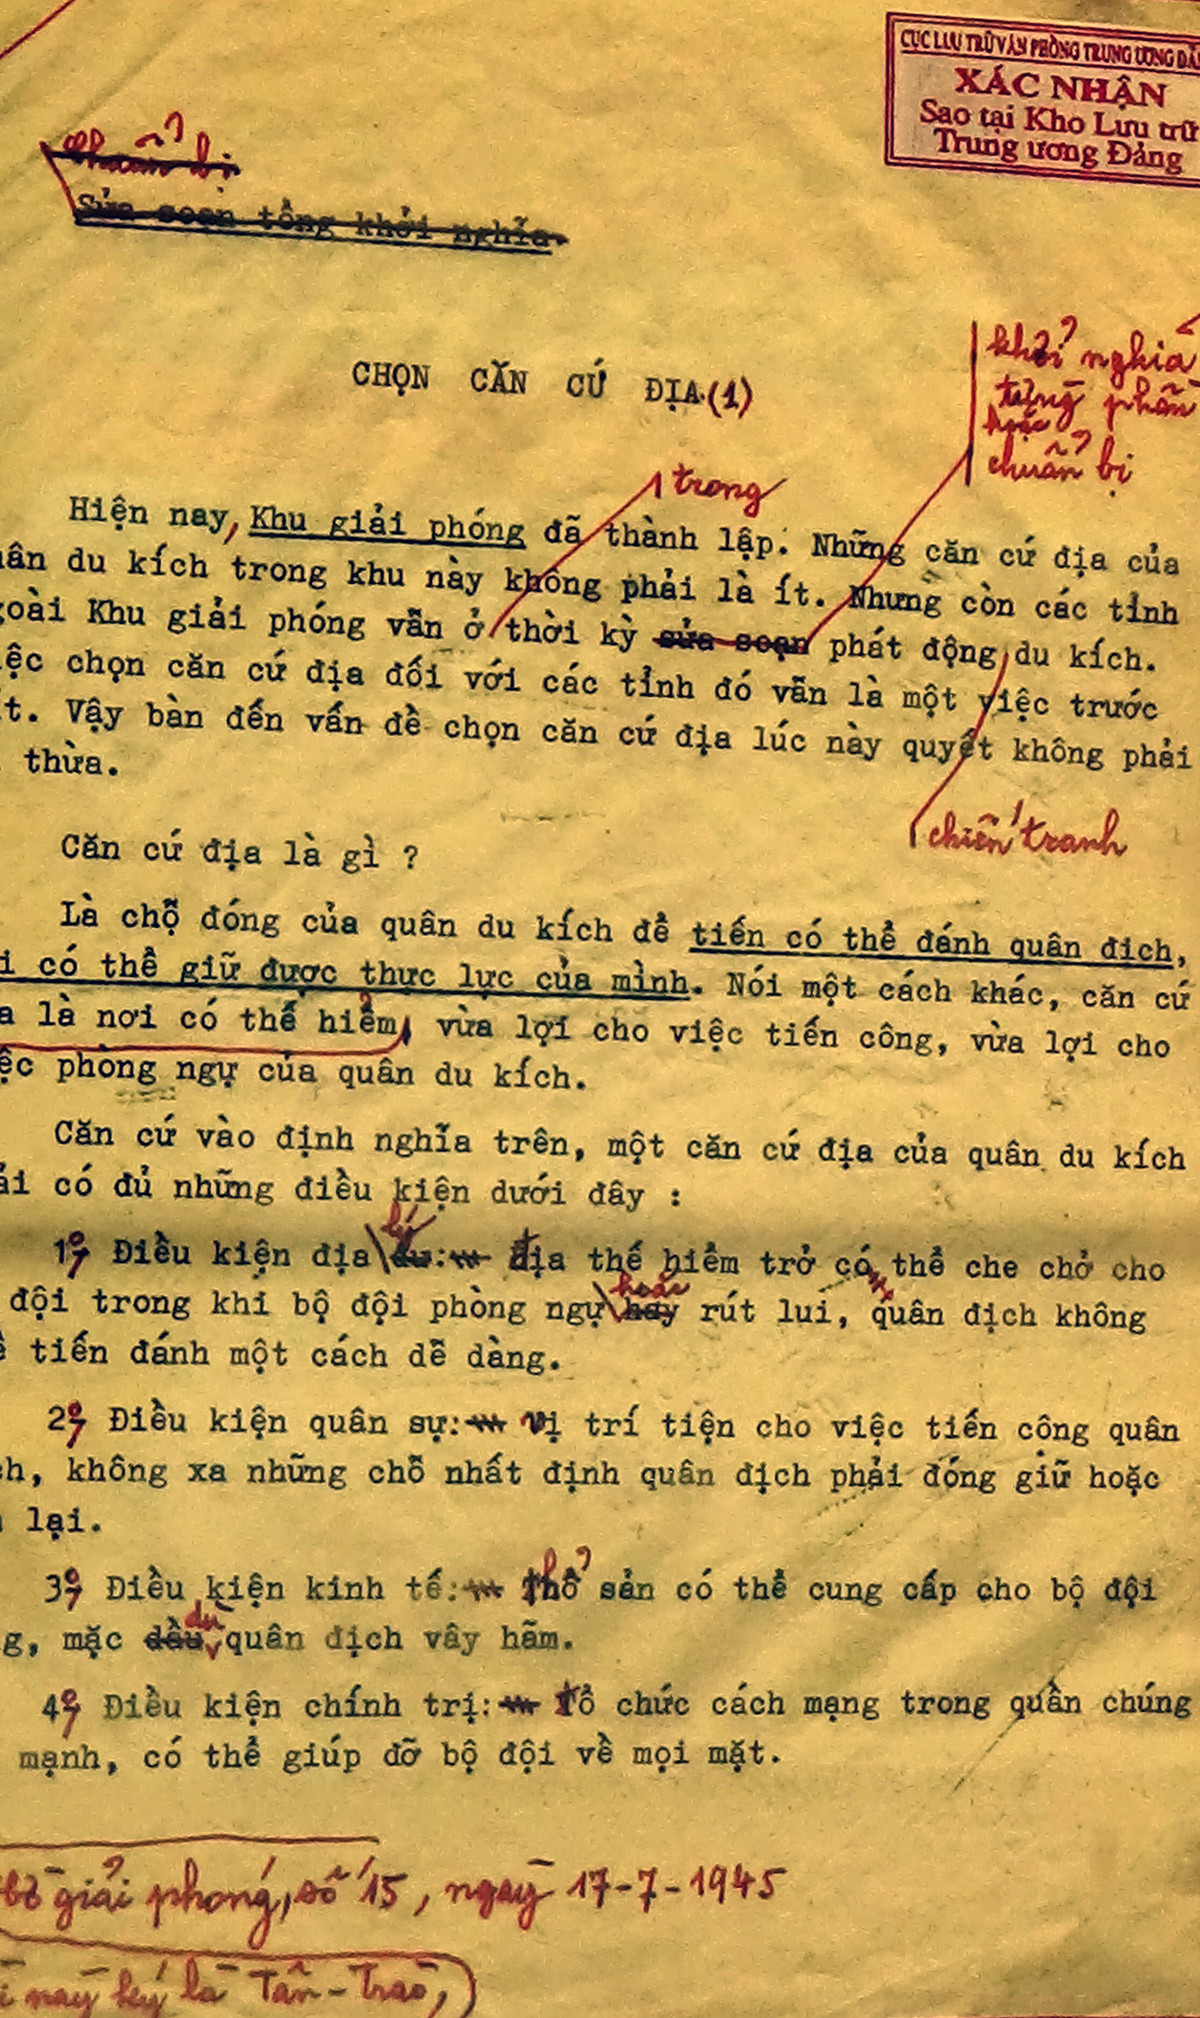 CỤC LƯU TRỮ VĂN PHÒNG TRUNG ƯƠNG
XÁC NHẬN
Sao tại Kho Lưu trữ
Trung ương Đảng
chuẩn bị
Sửa soạn tổng khởi nghĩa.
CHỌN CĂN CỨ ĐỊA.(1)
khởi nghĩa
từng phần
hoặc
chuẩn bị
trong
Hiện nay, Khu giải phóng đã thành lập. Những căn cứ địa của
du kích trong khu này không phải là ít. Nhưng còn các tỉnh
Khu giải phóng vẫn ở thời kỳ sửa soạn phát động du kích.
chọn căn cứ địa đối với các tỉnh đó vẫn là một việc trước
Vậy bàn đến vấn đề chọn căn cứ địa lúc này quyết không phải
thừa.
chiến tranh
Căn cứ địa là gì ?
Là chỗ đóng của quân du kích để tiến có thể đánh quân địch,
có thể giữ được thực lực của mình. Nói một cách khác, căn cứ
là nơi có thế hiểm, vừa lợi cho việc tiến công, vừa lợi cho
phòng ngự của quân du kích.
Căn cứ vào định nghĩa trên, một căn cứ địa của quân du kích
có đủ những điều kiện dưới đây :
lý
1º/ Điều kiện địa dư: địa thế hiểm trở có thể che chở cho
hoặc
đội trong khi bộ đội phòng ngự hay rút lui, quân địch không
tiến đánh một cách dễ dàng.
2º/ Điều kiện quân sự: vị trí tiện cho việc tiến công quân
không xa những chỗ nhất định quân địch phải đóng giữ hoặc
lại.
3º/ Điều kiện kinh tế: thổ sản có thể cung cấp cho bộ đội
dù
mặc dầu quân địch vây hãm.
4º/ Điều kiện chính trị: tổ chức cách mạng trong quần chúng
mạnh, có thể giúp đỡ bộ đội về mọi mặt.
giải phóng, số 15, ngày 17-7-1945
này ký là Tân-Trào,